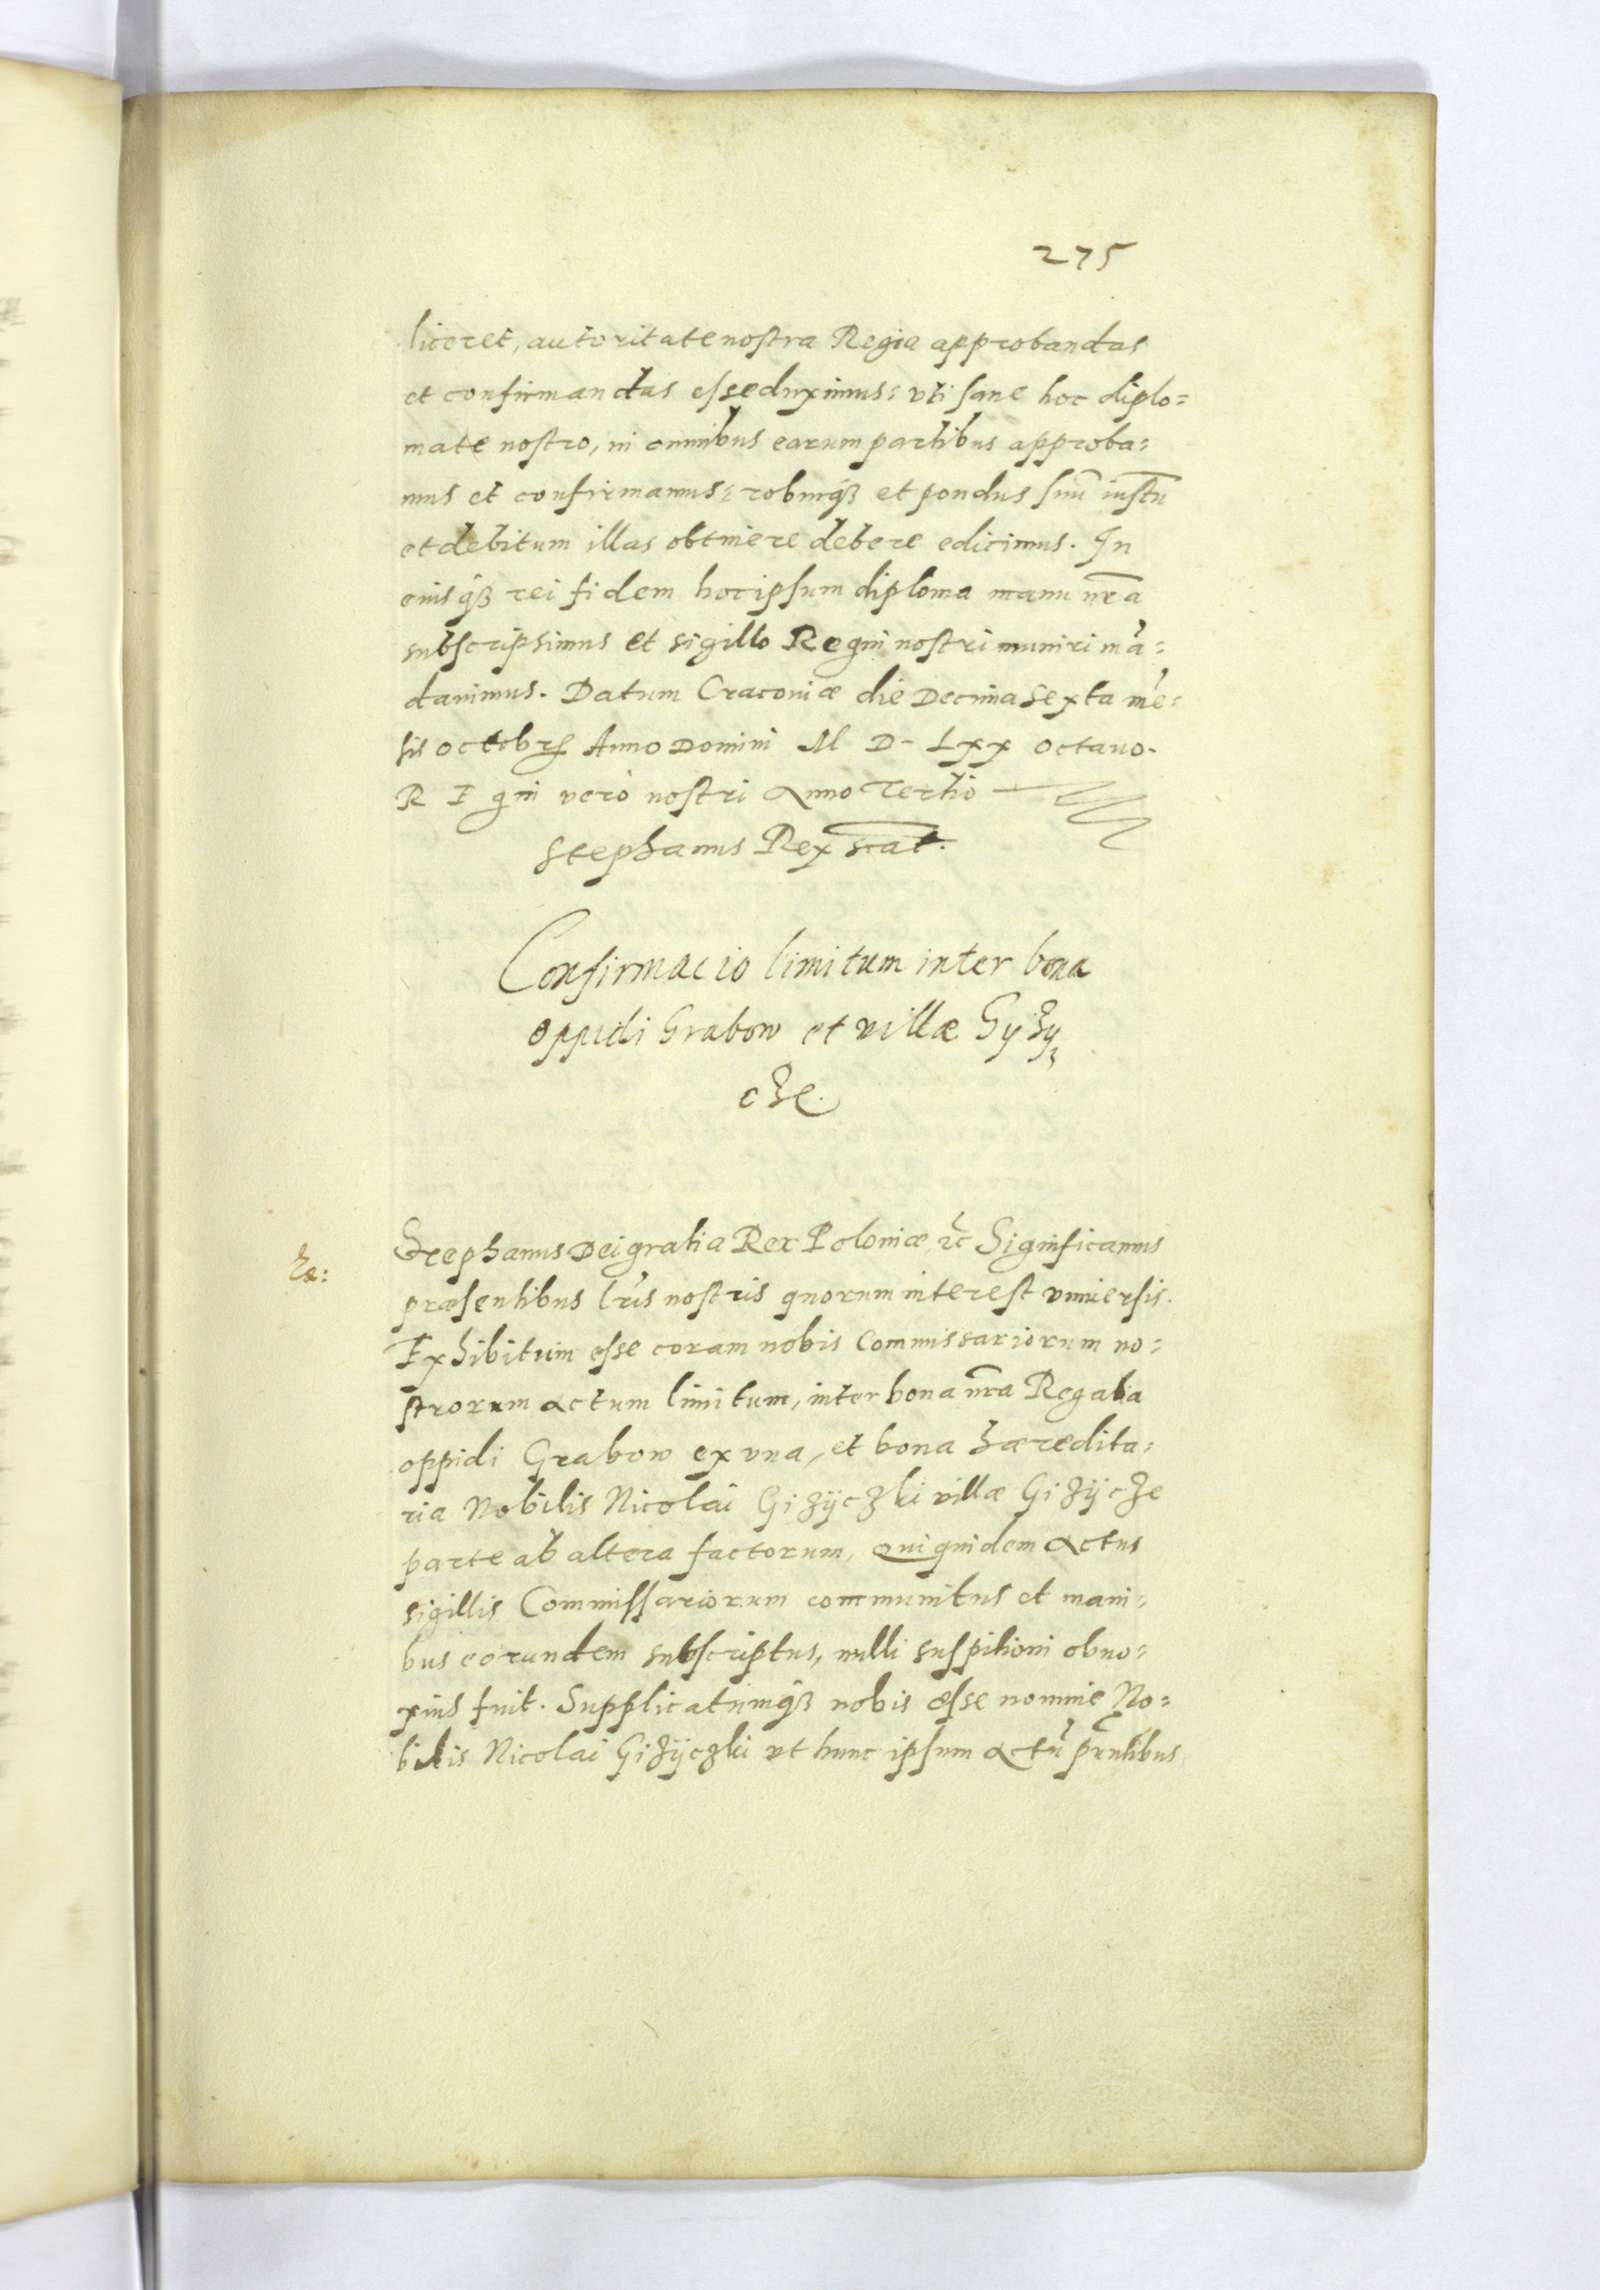 275
liceret, autoritate nostra Regia approbandas
et confirmandas esse duximus: vti sane hoc diplo=
mate nostro, in omnibus earum partibus approba=
mus et confirmamus: roburq3 et pondus suũ iustũ
et debitum illas obtinere debere edicimus. In
eiusq3 rei fidem hoc ipsum diploma manu nrã
subscripsimus et sigillo Regni nostri muniri mã=
dauimus. Datum Cracouiæ die Decima Sexta mẽ=
sis octobrꝭ Anno Domini M D- Lxx octauo.
REgni verò nostri Anno Tertio
Stephanus Rex
Confirmacio limitum inter bona
oppidi Grabow et villæ Gyzy
cze.
Stephanus Dei gratia Rex Poloniæ, etc̃ Significamus
præsentibus lr̃is nostris quorum interest vniuersis.
Exhibitum esse coram nobis Commissariorum no=
strorum actum limitum, inter bona nrã Regalia
oppidi Grabow ex vna, et bona hæredita=
ria Nobilis Nicolai Gizÿczki villæ Gizÿcze
parte ab altera factorum, Qui quidem Actus
sigillis Commissariorum communitus et mani=
bus eorundem subscriptus, nulli suspitioni obno=
xius fuit. Supplicatumq3 nobis esse nomine No=
bilis Nicolai Gizÿczki vt hunc ipsum Actũ prñtibus